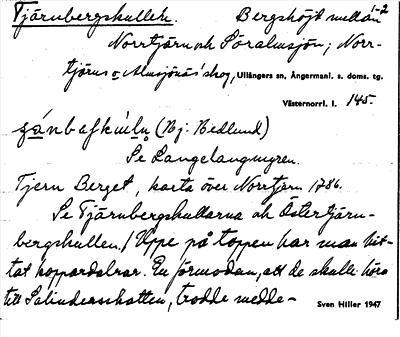 Tjärnbergskullen. Bergshöjd mellan 1-2
Norrtjärn och Söralmsjön; Norr-
tjärns o Almsjönäs' skog, Ullångers sn, Ångermanl. s. doms. tg.
Västernorrl. l. 145.
(Nj. Nedlund)
Se Långelångmyren.
Tjern Berget, karta över Norrtjärn 1786.
Se Tjärnbergskullarna och Östertjärn-
bergskullen./ Uppe på toppen har man hit-
tat koppardalrar. En förmodan, att de skulle höra
till Salinderskatten, trodde medde-
Sven Hiller 1947